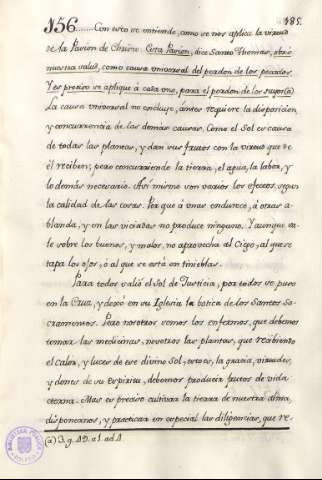 185.
156......Con esto se entiende, como se nos aplica la virtud
de la Pasion de Christo. Esta Pasion, dice Santo Thomas, obró
nuestra salud, como causa universal del perdon de los pecados.
Y es preciso se aplique á cada uno, para el perdon de los suyos (a)
La causa universal no excluye, antes requiere la disposicion,
y concurrencia de las demás causas. Como el Sol es causa
de todas las plantas, y dan sus frutos con la virtud que de
él reciben; pero concurriendo la tierra, el agua, la labor, y
lo demás necesario. Asi mismo son varios los efectos, segun
la calidad de las cosas. Por que á unas endurece, á otras a-
blanda, y en las viciadas no produce ninguno. Y aunque sa-
le sobre los buenos, y malos, no aprovecha al Ciego, al que se
tapa los ojos, ó al que se está en tinieblas.
Para todos salió el Sol de Justicia, por todos se puso
en la Cruz, y dexó en su Iglesia la botica de los Santos Sa-
cramentos. Pero nosotros somos los enfermos, que debemos
tomar las medicinas, nosotros las plantas, que recibiendo
el calor, y luces de ese divino Sol, esto es, la gracia, virtudes,
y dones de su Espiritu, debemos producir frutos de vida
eterna. Mas es preciso cultivar la tierra de nuestra alma,
disponernos, y practicar en especial las diligencias, que re-
(a) 3. q. 49. a 1. ad 4.